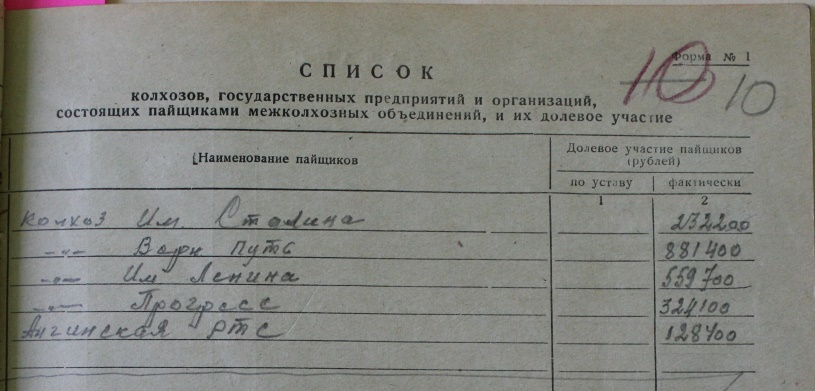 10 Форма № 1
10
СПИСОК
колхозов, государственных предприятий и организаций,
состоящих пайщиками межколхозных объединений, и их долевое участие
Наименование пайщиков
Долевое участие пайщиков
(рублей)
по уставу фактически
1 2
колхоз Им. Сталина 232200
-"- путь 881400
-"- Им Ленина 559700
-"- Прогресс 324100
Ангинская РТС 128400